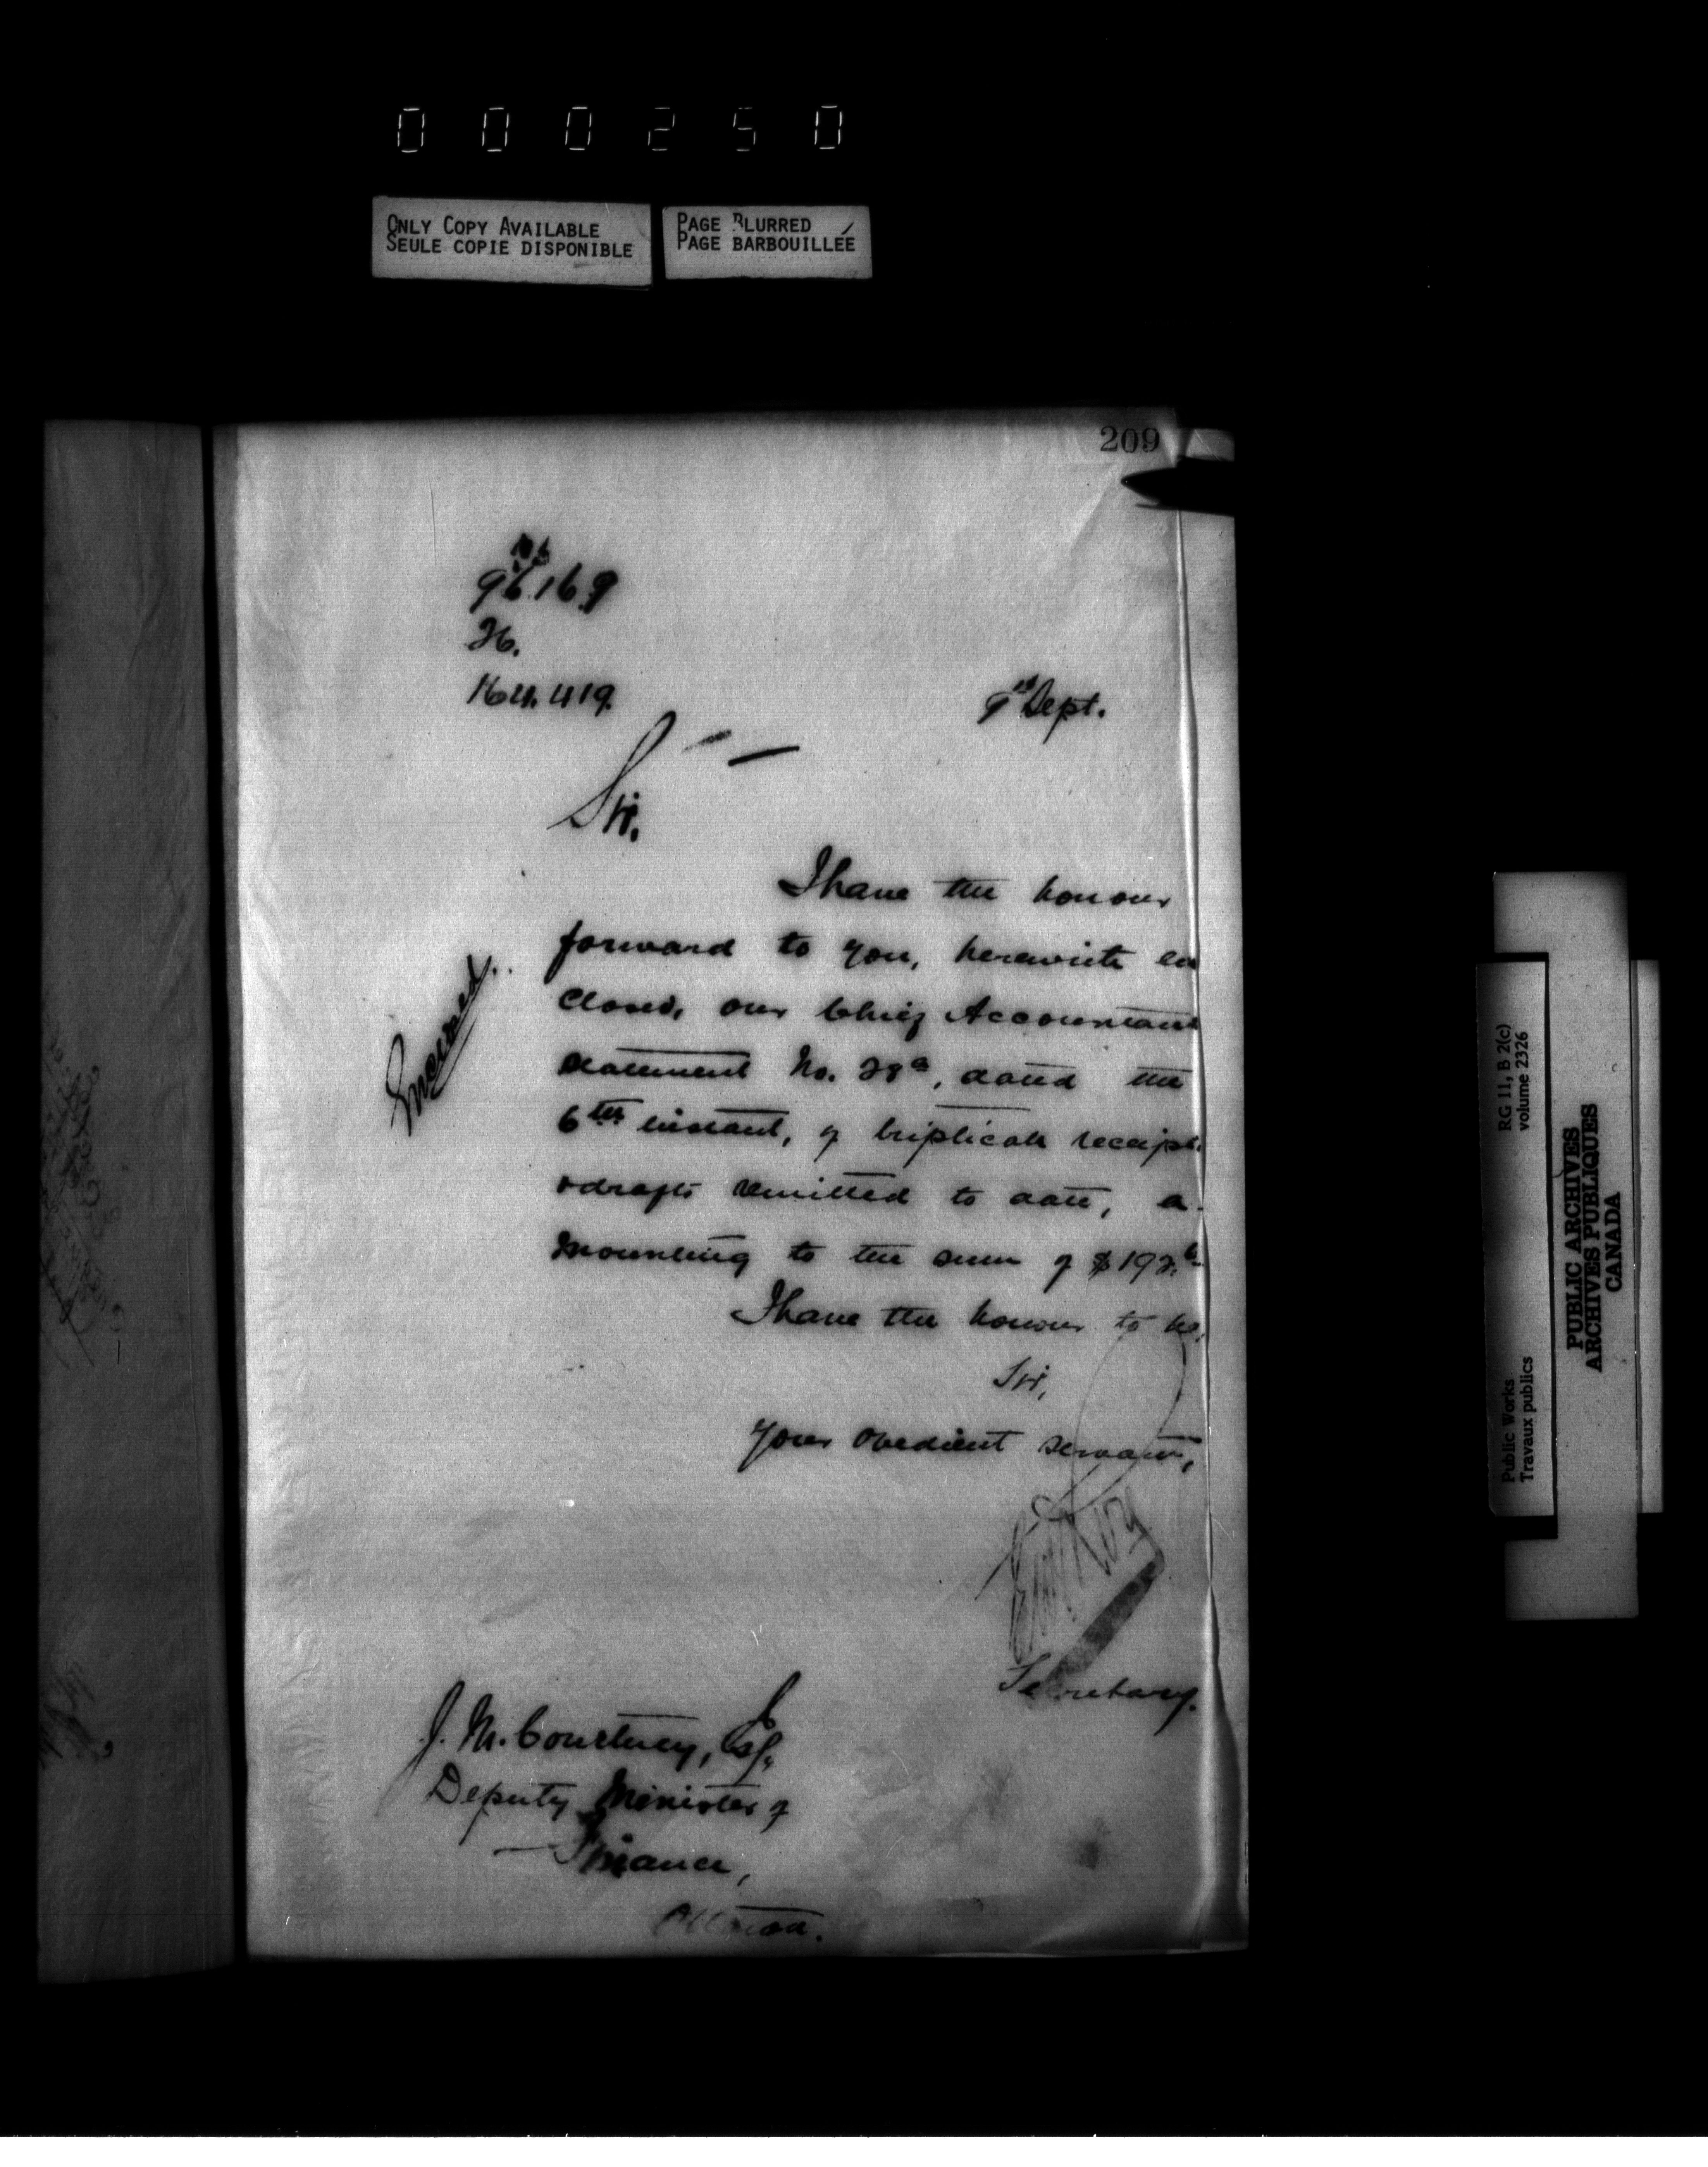 000250
ONLY COPY AVAILABLE
SEULE COPIE DISPONIBLE
PAGE BLURRED
PAGE BARBOUILLÉE
209
96.169
26.
164.419.
Sept.
Sir.
I have the honour
forward to you, herewith en
closed, our Chief Accountant
statement No. 28a, dated the
6th instant, of triplicate receipt
drafts remitted to date, a-
mounting to the sum of $192.
I have the honour to be,
Sir,
Your obedient servant,
Secretary.
J. M. Courtney, Esq.
Deputy Minister of
Finance,
Ottawa.
RG 11, B 2(c)
volume 2326
Public Works
Travaux publics
PUBLIC ARCHIVES
ARCHIVES PUBLIQUES
CANADA